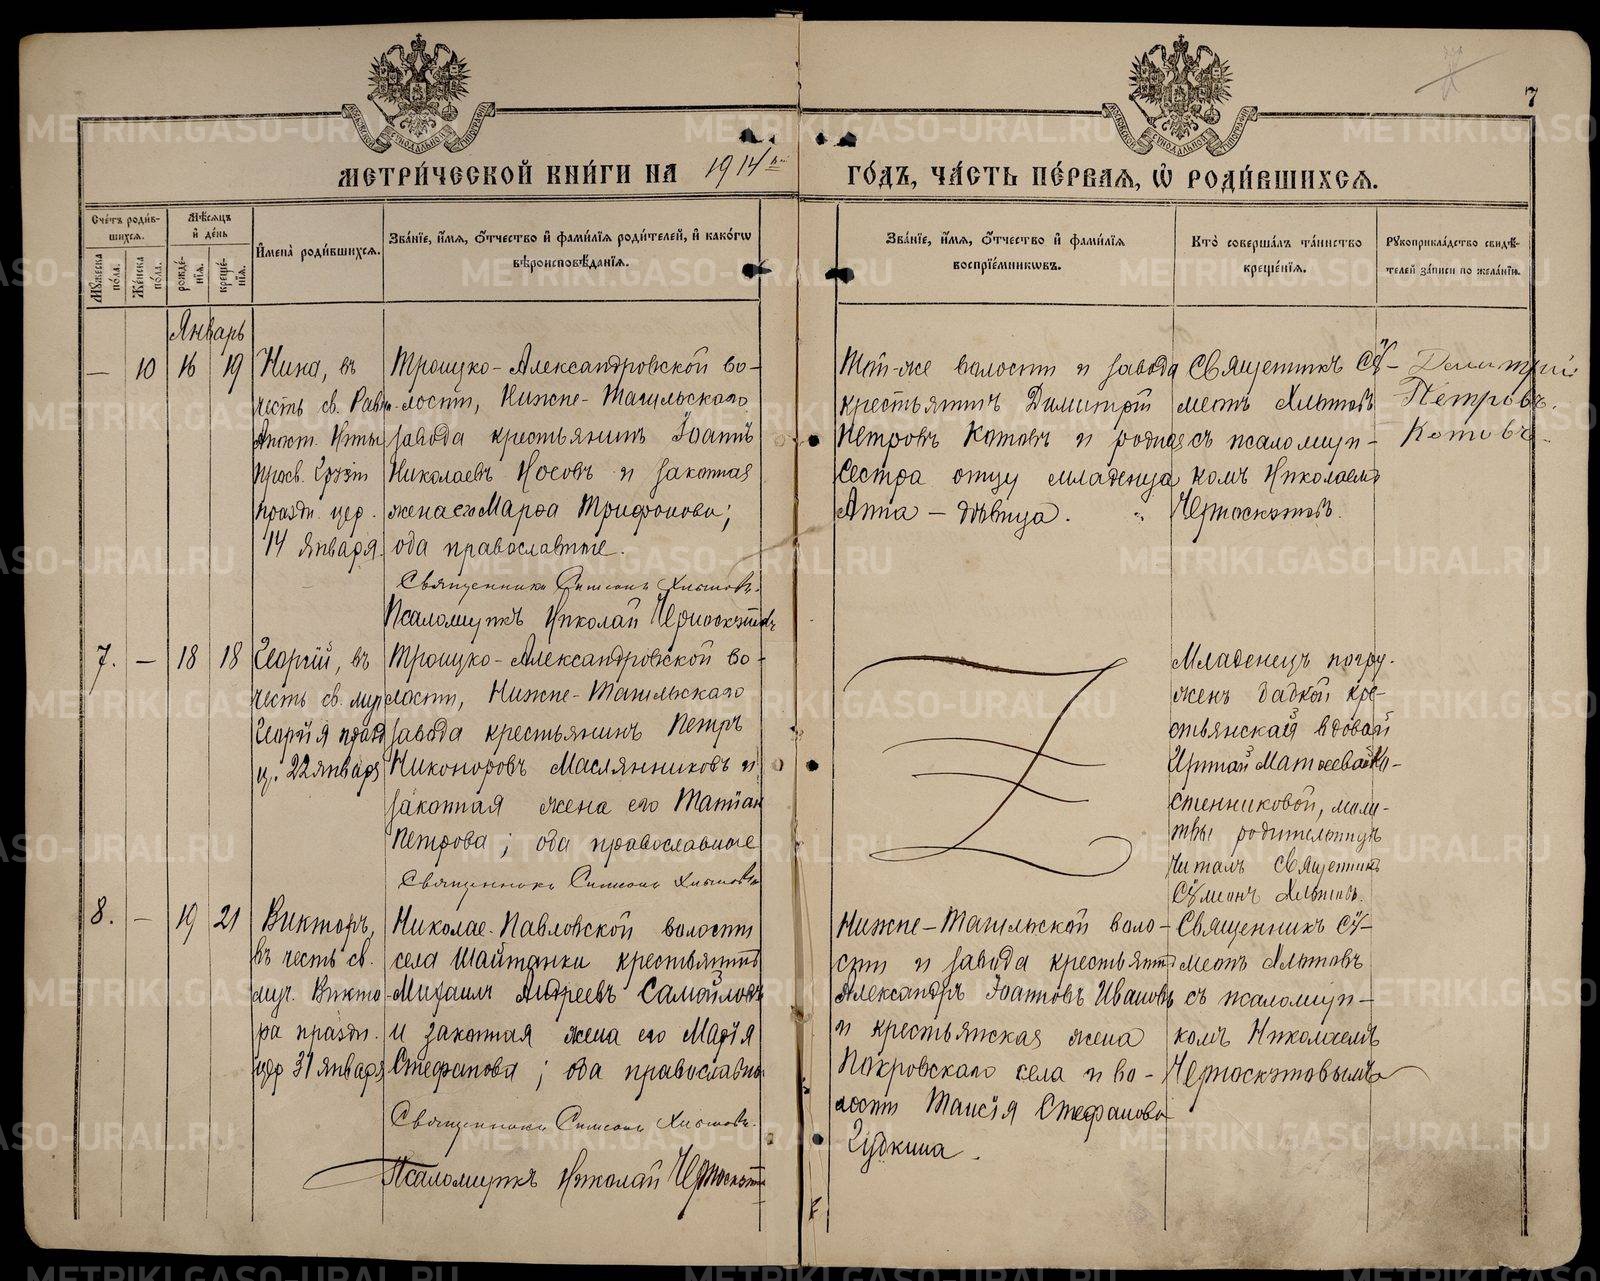 7
МЕТРИ́ЧЕСКОЙ КНИ́ГИ НА 1914й
ГО́ДЪ, ЧА́СТЬ ПЕ́РВАЯ, Ѡ РОДИ́ВШИХСЯ.
Сче́тъ роди́в-
шихся.
Му́жеска по́ла.
Же́нска по́ла.
Мѣ́сяцъ и҆ де́нь
рожде́-
нїя.
креще́-
нїя.
И҆мена̀ роди́вшихся.
Зва́нїе, и҆́мя, ѻ҆́тчество и҆ фами́лїя роди́телей, и҆ како́гѡ
вѣроисповѣ́данїя.
Зва́нїе, и҆́мя, ѻ҆́тчество и҆ фами́лїя
воспрїе́мниковъ.
Кто̀ соверша́лъ та́инство
креще́нїя.
Рукоприкла́дство свидѣ́-
телей за́писи по жела́нїю.
Январь
— 10 16 19
Нина, въ
честь св. Равн-
Апост. Нины
просв. Грузіи
праздн. цер.
14 января.
Троицко-Александровской во-
лости, Нижне-Тагильскаго
завода крестьянинъ Іоаннъ
Николаевъ Носовъ и законная
жена его Марѳа Трифонова;
оба православные.
Священникъ Симеонъ Хлыновъ.
Псаломщикъ Николай Черноскутовъ
Той-же волости и завода
крестьянинъ Димитрій
Петровъ Котовъ и родная
сестра отцу младенца
Анна – дѣвица.
Священникъ Сѵ-
меонъ Хлыновъ
съ псаломщи-
комъ Николаемъ
Черноскутовъ.
Димитрій
Петровъ
Котовъ.
7. — 18 18
Георгій, въ
честь св. муч
Георгія празд
ц. 22 января
Троицко-Александровской во-
лости, Нижне-Тагильскаго
завода крестьянинъ Петръ
Никоноровъ Маслянниковъ и
законная жена его Татіан
Петрова; оба православные
Священникъ Симеонъ Хлыновъ
Младенецъ погру-
женъ бабкой кре-
стьянской вдовой
Ириной Матѳеевой
стенниковой, моли-
твы родительницѣ
читалъ священникъ
Сѵмеонъ Хлыновъ.
8. — 19 21
Викторъ,
въ честь св.
муч. Викто-
ра праздн.
цер 31 января
Николае-Павловской волости
села Шайтанки крестьянинъ
Михаилъ Андреевъ Самойловъ
и законная жена его Марія
Стефанова; оба православны
Священникъ Симеонъ Хлыновъ.
Псаломщикъ Николай Черноскутов
Нижне-Тагильской воло-
сти и завода крестьянинъ
Александръ Іоанновъ Ивановъ
и крестьянская жена
Покровскаго села и во-
лости Таисія Стефанова
Губкина.
Священникъ Сѵ-
меонъ Хлыновъ
съ псаломщи-
комъ Николаемъ
Черноскутовымъ